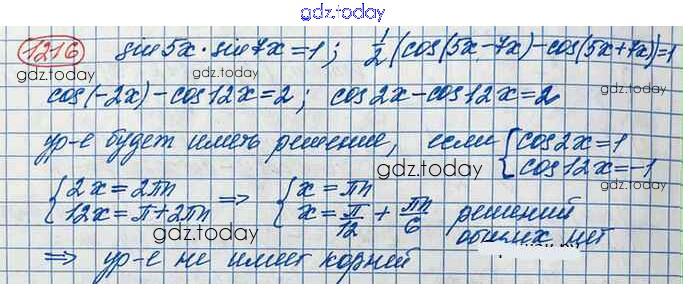 gdz.today
1216 sin5x·sin7x=1; 1/2(cos(5x-7x)-cos(5x+7x))=1
gdz.today
gdz.today
cos(-2x)-cos12x=2; cos2x-cos12x=2
ур-е будет иметь решение, если { cos2x=1
cos12x=-1
gdz.today
gdz.today
{ 2x=2πn ⇒ { x=πn
12x=π+2πn x=π/12+πn/6 решений
gdz.today
gdz.today
общих нет
⇒ ур-е не имеет корней
gdz.today